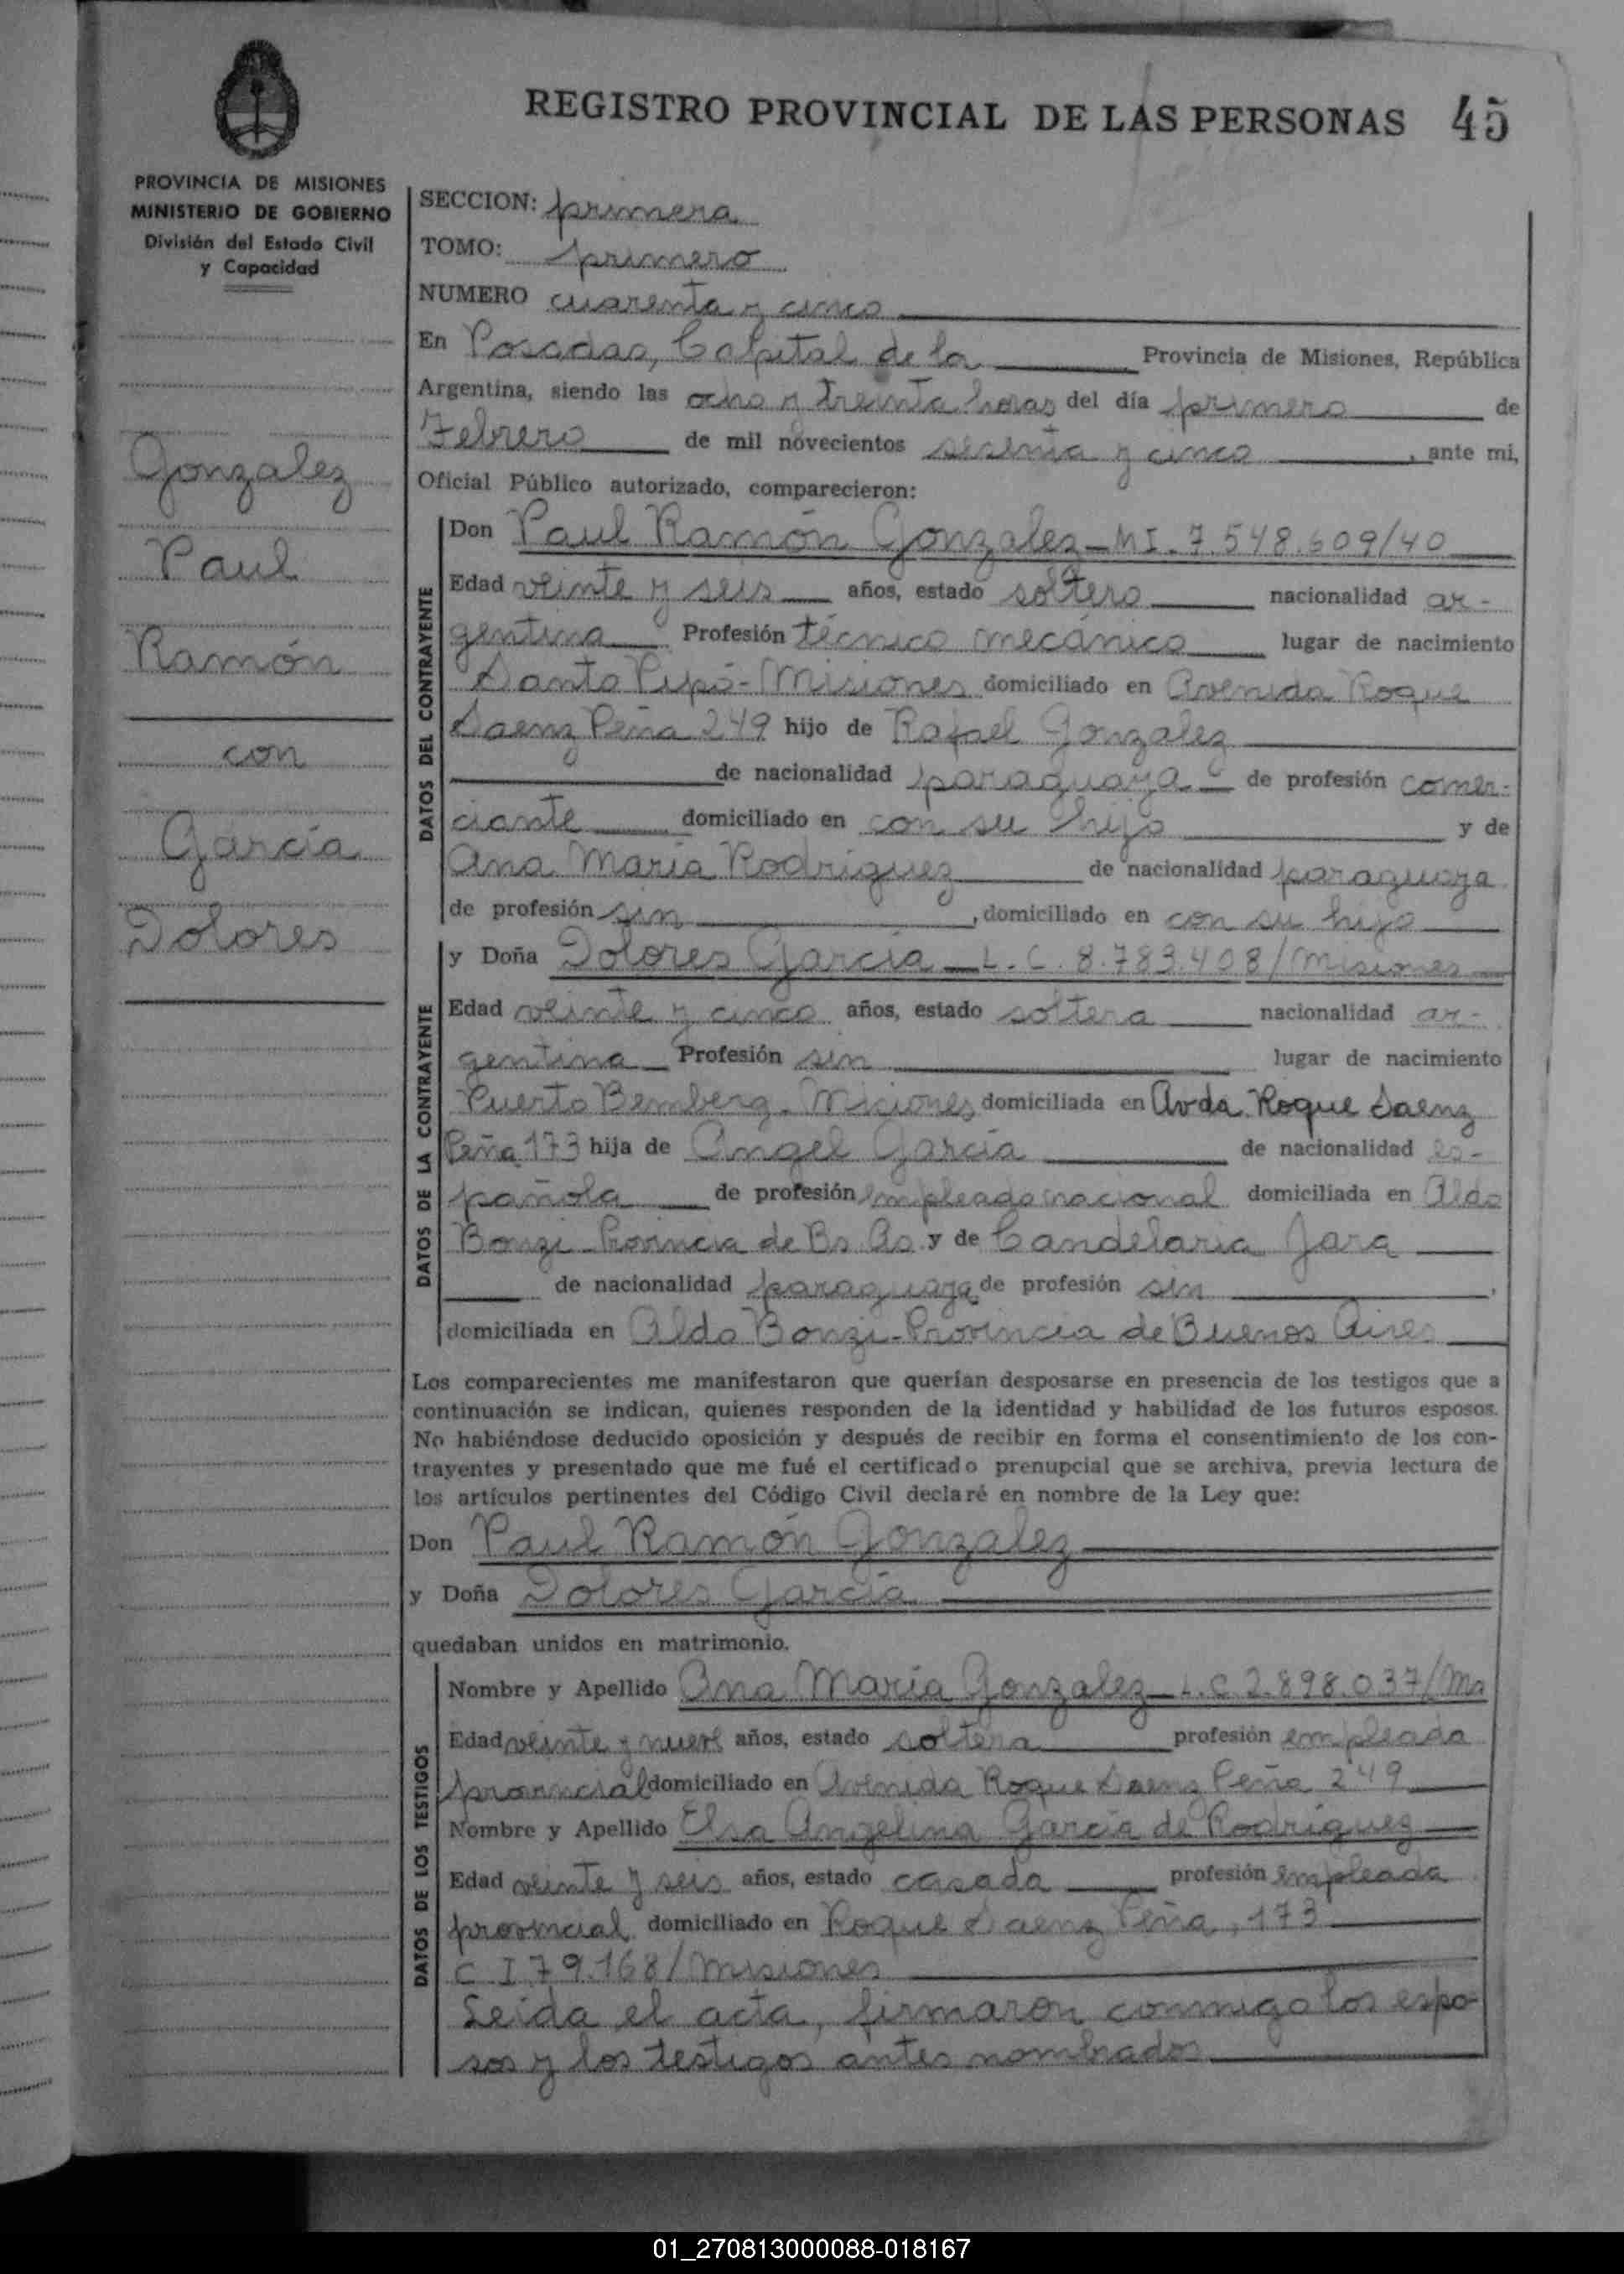 REGISTRO PROVINCIAL DE LAS PERSONAS 45
PROVINCIA DE MISIONES
MINISTERIO DE GOBIERNO
División del Estado Civil
y Capacidad
Gonzalez
Paul
Ramón
con
García
Dolores
SECCION: primera
TOMO: primero
NUMERO cuarenta y cinco
En Posadas, Capital de la Provincia de Misiones, República
Argentina, siendo las ocho y treinta horas del día primero de
Febrero de mil novecientos sesenta y cinco, ante mi,
Oficial Público autorizado, comparecieron:
DATOS DEL CONTRAYENTE
Don Paul Ramón Gonzalez - MI. 7.548.609/40
Edad veinte y seis años, estado soltero nacionalidad ar-
gentina Profesión técnico mecánico lugar de nacimiento
Santo Pipó - Misiones domiciliado en Avenida Roque
Saenz Peña 249 hijo de Rafael Gonzalez
de nacionalidad paraguaya de profesión comer-
ciante domiciliado en con su hijo y de
Ana María Rodríguez de nacionalidad paraguaya
de profesión sin, domiciliado en con su hijo
DATOS DE LA CONTRAYENTE
y Doña Dolores García - L. C. 8.783.408/Misiones
Edad veinte y cinco años, estado soltera nacionalidad ar-
gentina Profesión sin lugar de nacimiento
Puerto Bemberg - Misiones domiciliada en Avda. Roque Saenz
Peña 173 hija de Angel García de nacionalidad es-
pañola de profesión empleado nacional domiciliada en Aldo
Bonzi - Provincia de Bs. As. y de Candelaria Jara
de nacionalidad paraguaya de profesión sin
domiciliada en Aldo Bonzi - Provincia de Buenos Aires
Los comparecientes me manifestaron que querían desposarse en presencia de los testigos que a
continuación se indican, quienes responden de la identidad y habilidad de los futuros esposos.
No habiéndose deducido oposición y después de recibir en forma el consentimiento de los con-
trayentes y presentado que me fué el certificado prenupcial que se archiva, previa lectura de
los artículos pertinentes del Código Civil declaré en nombre de la Ley que:
Don Paul Ramón Gonzalez
y Doña Dolores García
quedaban unidos en matrimonio.
DATOS DE LOS TESTIGOS
Nombre y Apellido Ana María Gonzalez - L. C. 2.898.037/Mns
Edad veinte y nueve años, estado soltera profesión empleada
provincial domiciliado en Avenida Roque Saenz Peña 249
Nombre y Apellido Elsa Angelina García de Rodríguez
Edad veinte y seis años, estado casada profesión empleada
provincial domiciliado en Roque Saenz Peña, 173
C. I. 79.168/Misiones
Leida el acta, firmaron conmigo los espo-
sos y los testigos antes nombrados
01_270813000088-018167